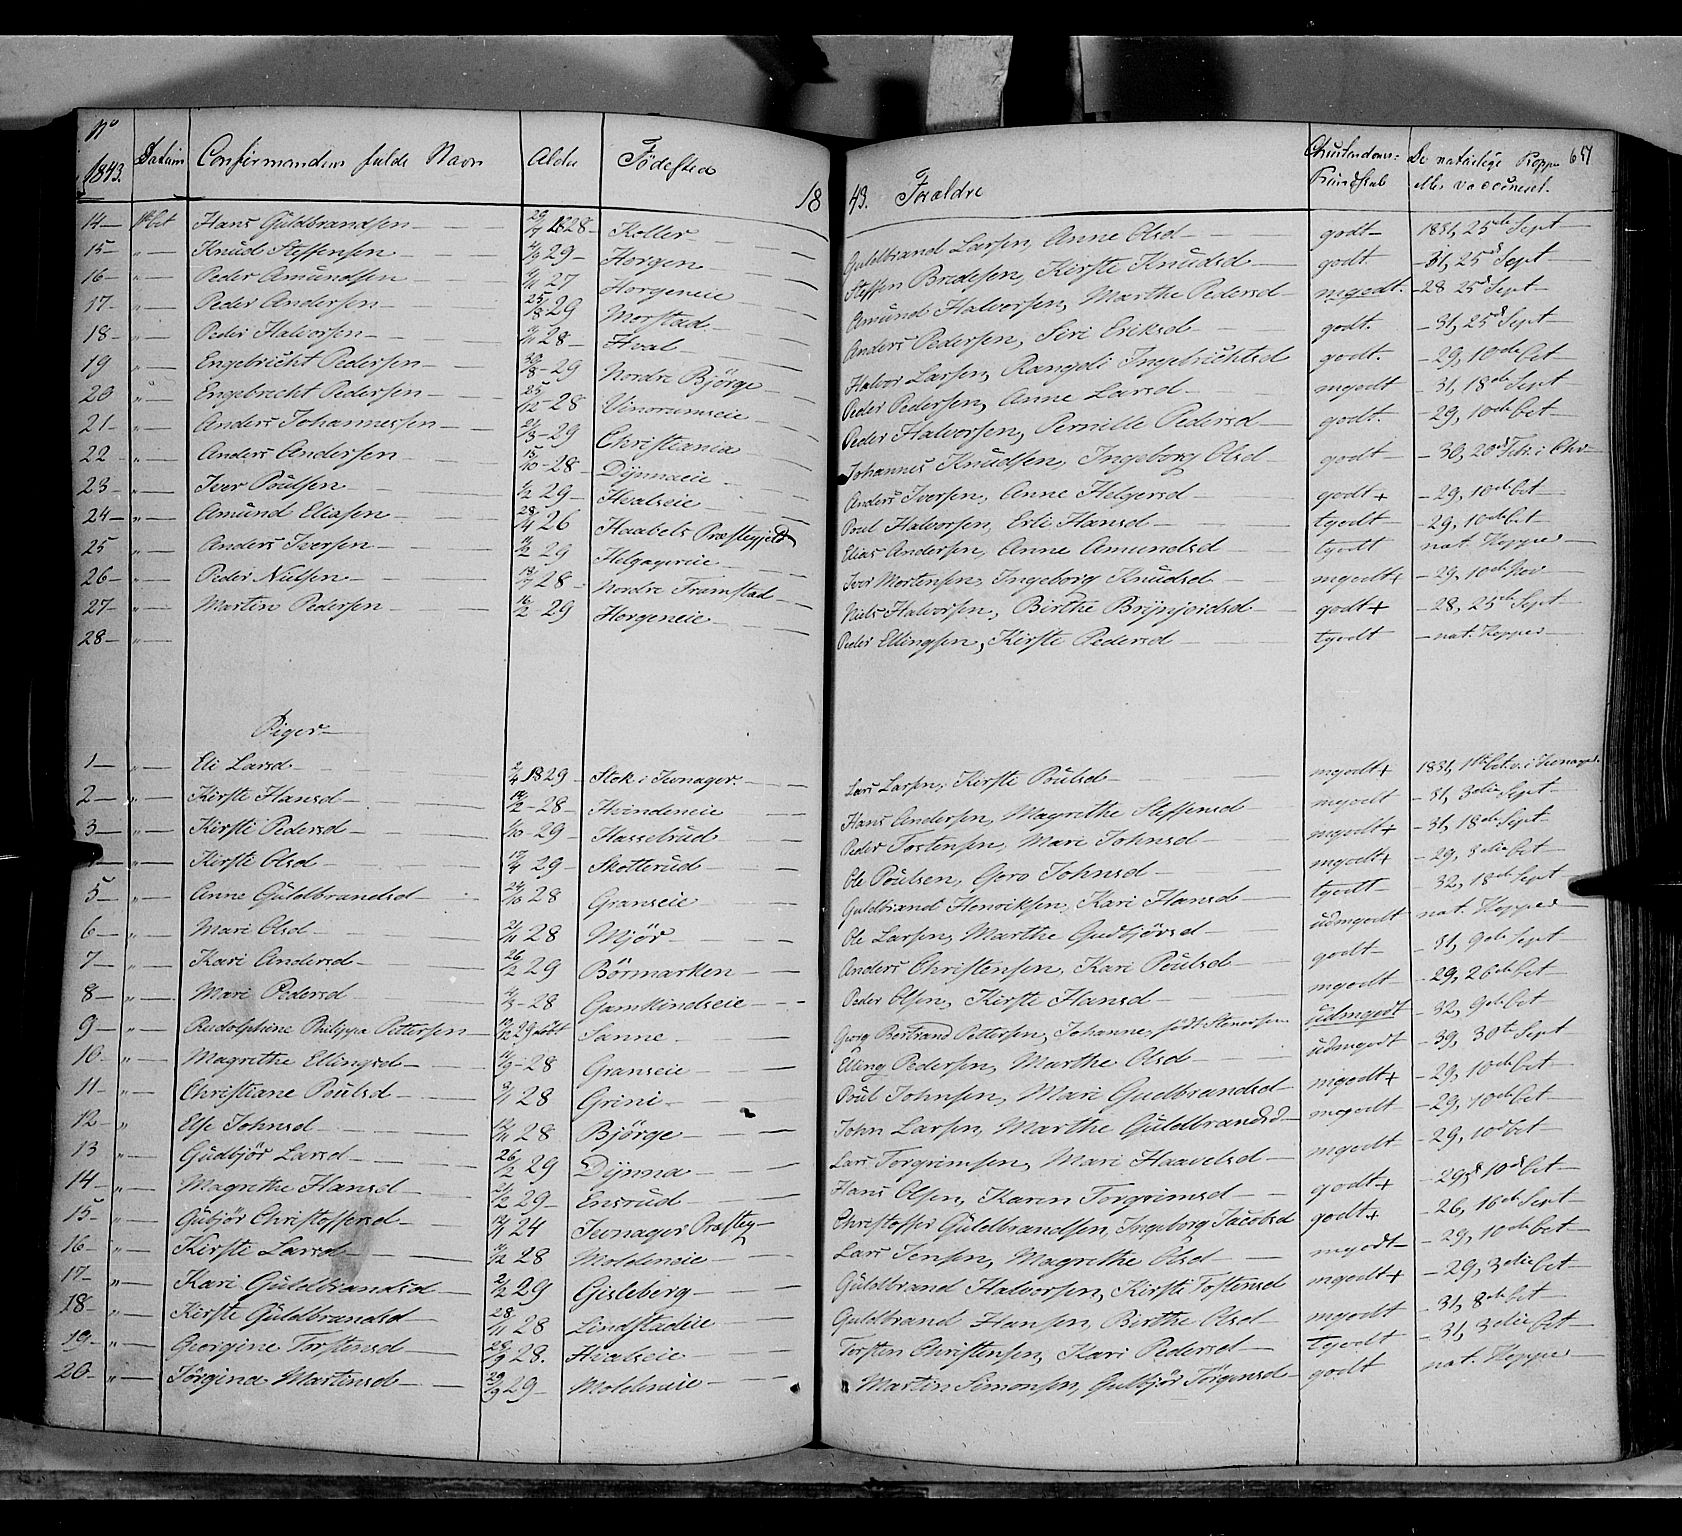 No 1843. Datum Confirmandens fulde Navn Alder Fødested 18 43. Forældre Christendoms: Kundskab De naturlige Kopper eller vaccineret. 651
14 — 1ste Oct Hans Güldbrandsen — 29/7 1828 — Koller — Guldbrand Larsen, Anne Olsd — godt — 1831, 25de Sept
15 — " — Knud Steffensen — 4/9 29 — Horgen — Steffen Bredesen, Kirsti Knudsd — godt. — 31, 25d Sept
16 — " — Peder Amundsen — 27 Horgeneie — Amund Halvorsen, Marthe Pedersd — mgodt. — 28 25d Sept
17 — " — Peder Andersen — 25/8 29 Morstad — Anders Pedersen, Siri Eriksd — godt. — 31, 25d Sept
18 — " — Peder Halvorsen — 28 — Hval — Halvor Larsen, Rangdi Ingebrichtsd godt. — 29, 10de Oct
19 — " — Engebricht Pedersen — 30/8 — 29 Nordre Bjørge — Peder Pedersen, Anne Larsd — mgodt — 31, 18de Sept
20 — " — Engebrecht Pedersen — 25/12 — 28 Vinorumseie — Peder Halvorsen, Pernille Pedersd — godt. — 29, 10de Oct
21 — " — Anders Johannessen — 21/3 — 29 Christiania — Johannes Knudsen, Ingeborg Olsd godt — 30, 20d Febr. i Chr.
22 — " — Anders Andersen — 15/10 — 28 — Dynnaeie — Anders Iversen, Anne Helgersd — godt + — 29, 10de Oct
23 — " — Iver Poulsen — 1/2 29 — Hvalseie — Poul Halvorsen, Erli Hansd — tgodt — 29, 10de Oct
24 — " — Amund Eliasen — 28/4 26 Haabels Præstegjeld Elias Andersen, Anne Amundsd — tgodt nat. Kopper
25 — " — Anders Iversen — 11/2 29 Helgageneie — Iver Mortensen, Ingeborg Knudsd — mgodt + — 29, 10de Nov
26 — " — Peder Nielsen — 18/7 28 — Nordre Framstad — Niels Halvorsen, Birthe Brynjersdsd — godt + — 28, 25de Sept
27 — " — Martin Pedersen — 16/2 — 29 Horgeneie — Peder Ellingsen, Kirsti Pedersd — tgodt — nat. Kopper
28 — " —
Piger —
1 — " — Eli Larsd — 2/4 1829 — Stok i Jevnager. — Lars Larsen, Kirsti Poulsd — mgodt + 1831, 1ste Oct. i Jevnager
2 — " — Kirsti Hansd — 14/2 — 28 — Hvindeneie — Hans Andersen, Magrethe Steffensd — mgodt — 31, 3die Sept
3 — " — Kirsti Pedersd — 1/10 — 29 — Hasselrud — Peder Tostensen, Mari Johnsd — mgodt + — 31, 18de Sept
4 — " — Kirsti Olsd — 17/4 29 — Skotterud — Ole Poulsen, Goro Johnsd — mgodt + — 29, 8die Oct
5 — " — Anne Güldbrandsd — 24/10 28 Granseie — Guldbrand Henriksen, Kari Hansd — tgodt — 32, 18de Sept
6 — " — Mari Olsd — 21/11 28 Mjør — Ole Larsen, Marthe Gudbjørsd — udmgodt nat. Kopper
7 — " — Kari Andersd — 26/2 29 Børmarken — Anders Christensen, Kari Poulsd — godt — 31, 9de Sept
8 — " — Mari Pedersd — 4/3 — 28 Gamkindseie — Peder Olsen, Kirsti Hansd — mgodt — 29, 26de Oct
9 — " — Rudolphine Philippa Pettersen — 12/12 29 døbt Sanne — Georg Bertrand Pettersen, Johanne, født Stenersen udmgodt — 32, 9de Oct
10 — " — Magrethe Ellingsd — 11/9 — 28 Granseie — Elling Pedersen, Marthe Olsd — udmgodt — 39, 30te Sept
11 — " — Christiane Poulsd — 3/1 28 Grini — Poul Johnsen, Mari Gudbrandsd — mgodt + — 29, 10de Oct
12 — " Else Johnsd — 12/11 28 Bjørge — John Larsen, Marthe Güldbrandsd — mgodt — 29, 10de Oct
13 " — Gudbjør Larsd — 26/2 29 Dynna — Lars Torgrimsen, Mari Haavelsd — mgodt — 29, 10d Oct
14 — " — Magrethe Hansd — 21/2 29 — Ensrud — Hans Olsen, Karen Torgrimsd — godt + — 29, 10d Oct
15 — " — Gubjør Christoffersd — 12/1 24 Jevnager Præsteg — Christoffer Güldbrandsen, Ingeborg Jacobsd godt + — 26, 16de Sept
16 — " — Kirsti Larsd — 11/12 28 Moldeneie — Lars Jensen, Magrethe Olsd — mgodt — 29, 10de Oct
17 — " — Kari Güldbrandsd 2/12 29 Gisleberg — Güldbrand Halvorsen, Kirsti Tostensd mgodt + — 29, 3die Oct
18 — " — Kirsti Güldbrandsd 28/11 28 Lindstadeie — Guldbrand Hansen, Berthe Olsd — mgodt — 31, 8de Oct
19 — " — Georgine Torstensd — 29/9 28. Hvalseie — Torsten Christensen, Kari Pedersd — tgodt — 31, 3die Oct
20 — " — Jørgina Martinsd — 29/9 29 — Moldeneie — Martin Simonsen, Gulbjør Jørgensd — godt nat. Kopper